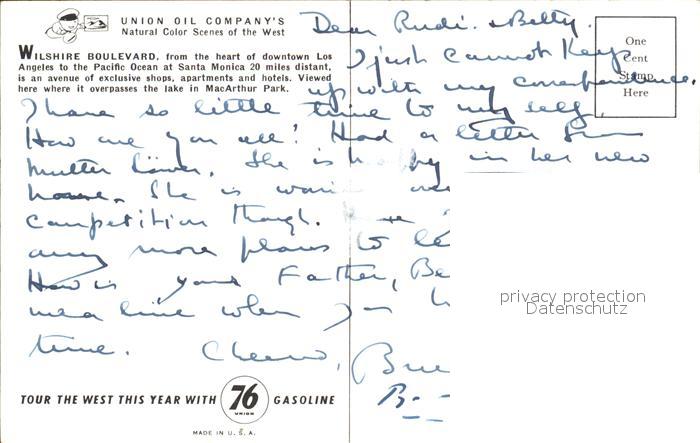 UNION OIL COMPANY'S
Natural Color Scenes of the West
WILSHIRE BOULEVARD, from the heart of downtown Los
Angeles to the Pacific Ocean at Santa Monica 20 miles distant,
is an avenue of exclusive shops, apartments and hotels. Viewed
here where it overpasses the lake in MacArthur Park.
One
Cent
Stamp
Here
Dear Rudi & Betty.
I just cannot keep
up with my correspondence.
I have so little time to my self.
How are you all? Had a letter from
Mutter. She is happy in her new
house. She is
competition though.
any more plans to
How is your Father, Be
me a line when you h
time. Cheerio,
privacy protection
Datenschutz
TOUR THE WEST THIS YEAR WITH 76 UNION GASOLINE
MADE IN U. S. A.